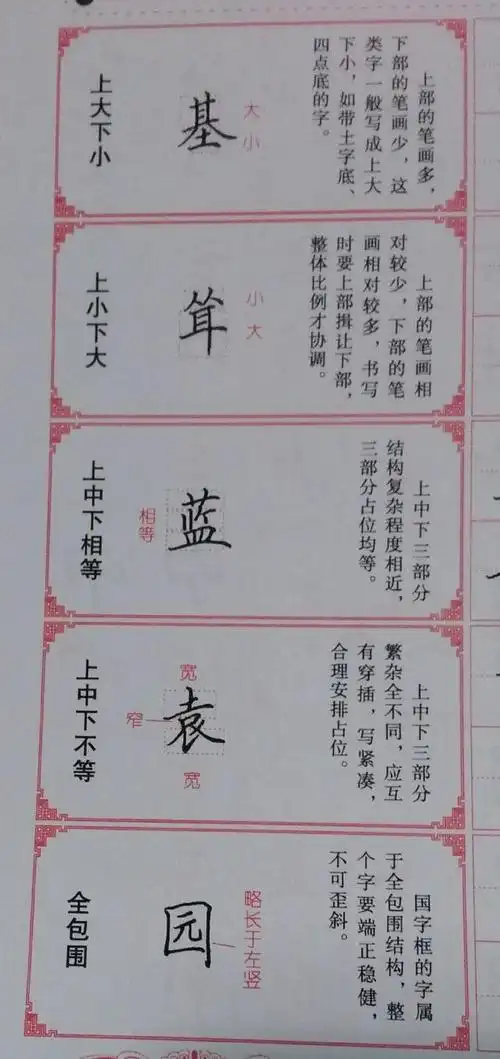 上大下小
基
大
小
上部的笔画多，
下部的笔画少，这
类字一般写成上大
下小，如带土字底、
四点底的字。
上小下大
耸
小
大
上部的笔画相
对较少，下部的笔
画相对较多，书写
时要上部揖让下部，
整体比例才协调。
上中下相等
相等
蓝
上中下三部分
结构复杂程度相近，
三部分占位均等。
上中下不等
宽
窄
袁
宽
上中下三部分
繁杂全不同，应互
有穿插，写紧凑，
合理安排占位。
全包围
园
略长于左竖
国字框的字属
于全包围结构，整
个字要端正稳健，
不可歪斜。